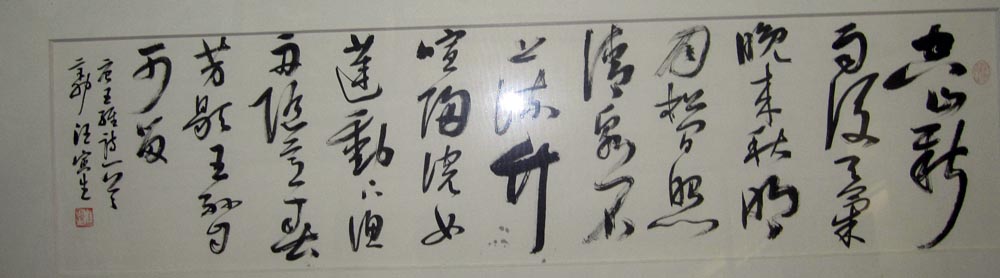 空山新
雨後天氣
晚來秋明
月松間照
清泉石
上流竹
喧歸浣女
蓮動下漁
舟隨意春
芳歇王孫自
可留
唐王維詩一首
汪寅生